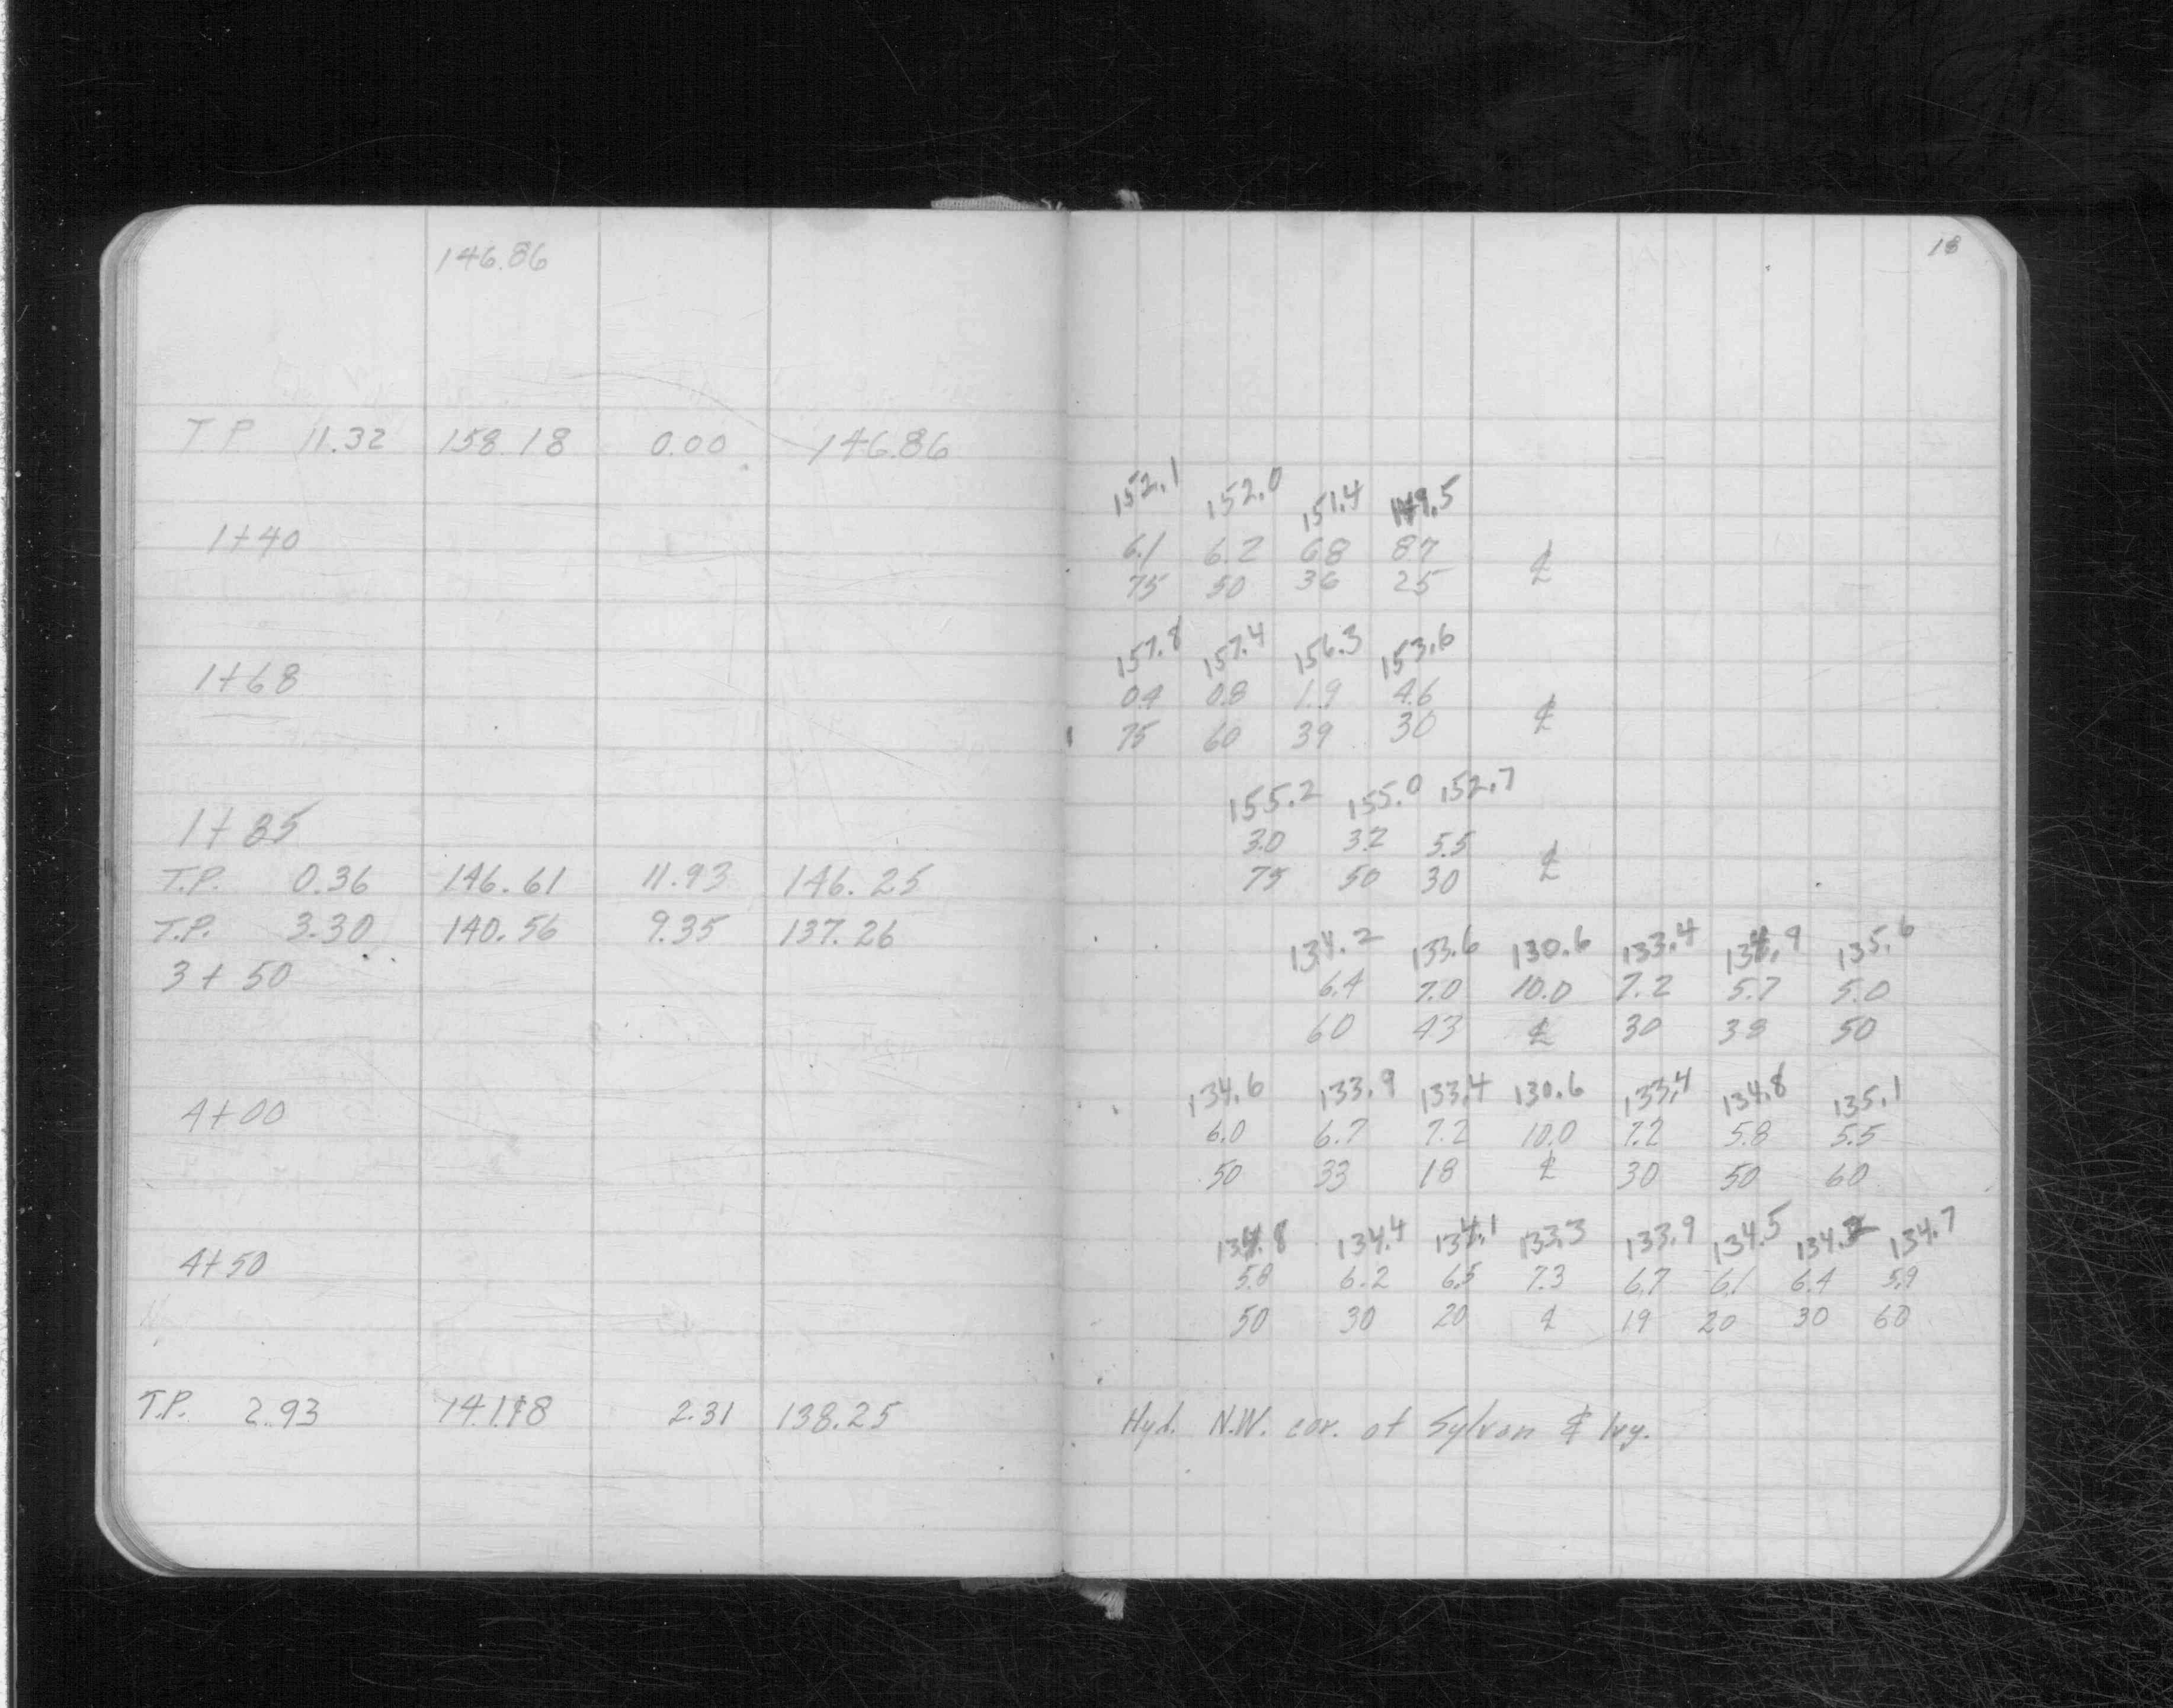 146.86
18
T.P. 11.32 158.18 0.00 146.86
152.1 152.0 151.4 149.5
1+40 6.1 6.2 6.8 8.7
75 50 36 25 ℄
157.8 157.4 156.3 153.6
1+68 0.4 0.8 1.9 4.6
75 60 39 30 ℄
155.2 155.0 152.7
1+85 3.0 3.2 5.5
T.P. 0.36 146.61 11.93 146.25 75 50 30 ℄
T.P. 3.30 140.56 9.35 137.26 134.2 133.6 130.6 133.4 134.9 135.6
3+50 6.4 7.0 10.0 7.2 5.7 5.0
60 43 ℄ 30 38 50
134.6 133.9 133.4 130.6 133.4 134.8 135.1
4+00 6.0 6.7 7.2 10.0 7.2 5.8 5.5
50 33 18 ℄ 30 50 60
134.8 134.4 134.1 133.3 133.9 134.5 134.2 134.7
4+50 5.8 6.2 6.5 7.3 6.7 6.1 6.4 5.9
50 30 20 ℄ 19 20 30 60
T.P. 2.93 141.18 2.31 138.25 Hyd. N.W. cor. of Sylvan & Ivy.